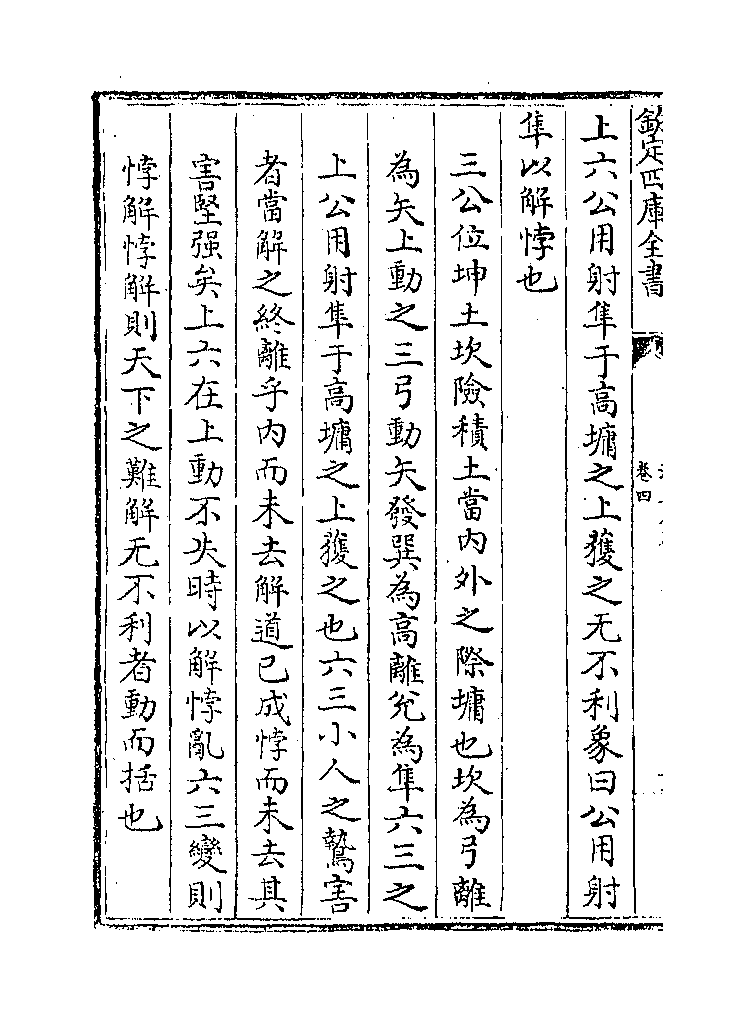 欽定四庫全書
卷四
上六公用射隼于高墉之上獲之无不利象曰公用射
隼以解悖也
三公位坤土坎險積土當内外之際墉也坎為弓離
為矢上動之三弓動矢發巽為高離兊為隼六三之
上公用射隼于高墉之上獲之也六三小人之鷙害
者當解之終離乎内而未去解道已成悖而未去其
害堅强矣上六在上動不失時以解悖亂六三變則
悖解悖解則天下之難解无不利者動而括也